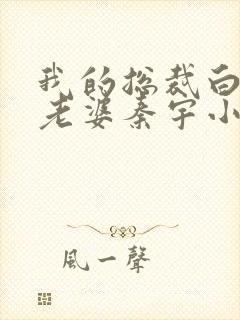 我的总裁白
老婆秦宇小
風一聲